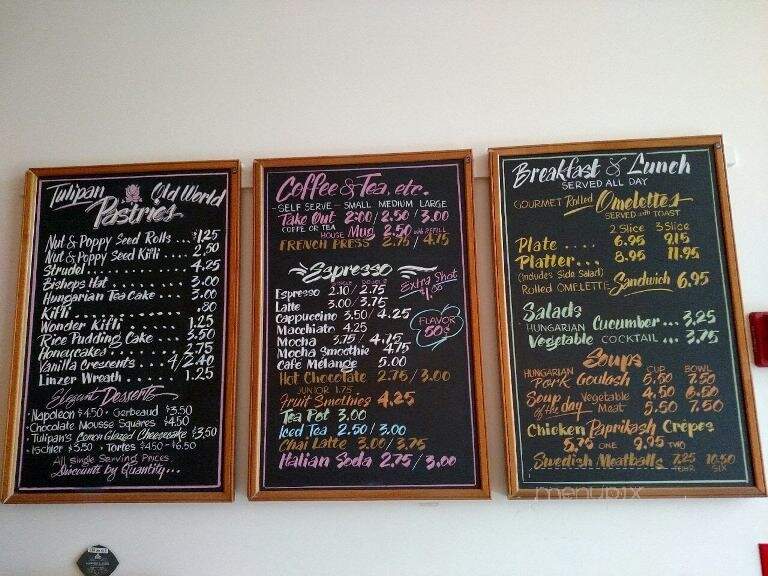 Tulipan Old World
Pastries
Nut & Poppy Seed Rolls .. $1.25
Nut & Poppy Seed Kifli .... 2.50
Strudel ............ 4.25
Bishops Hat ........ 3.00
Hungarian Tea Cake .... 3.00
Kifli ............ .80
Wonder Kifli ....... 1.25
Rice Pudding Cake .... 3.50
Honeycakes ........ 2.75
Vanilla Crescents .... 4/2.40
Linzer Wreath .... 1.25
Elegant Desserts
• Napoleon $4.50 • Gerbeaud $3.50
• Chocolate Mousse Squares $4.50
• Tulipan's Lemon Glazed Cheesecake $3.50
• Ischler $3.50 • Tortes $4.50-$6.50
All Single Serving Prices
Discounts by Quantity...
Coffee & Tea, etc.
- SELF SERVE - SMALL MEDIUM LARGE
Take Out 2:00/2.50/3.00
COFFE OR TEA
HOUSE Mug 2.50 with REFILL
FRENCH PRESS 2.75/4.75
Espresso
Espresso 2.10/2.75
Extra Shot $1.00
Latte 3.00/3.75
Cappuccino 3.50/4.25
Macchiato 4.25
FLAVOR 50¢
Mocha 3.75/4.75
Mocha Smoothie 4.75
Café Mélange 5.00
Hot Chocolate 2.75/3.00
JUNIOR 1.75
Fruit Smoothies 4.25
Tea Pot 3.00
Iced Tea 2.50/3.00
Chai Latte 3.00/3.75
Italian Soda 2.75/3.00
Breakfast & Lunch
SERVED ALL DAY
GOURMET Rolled Omelettes
SERVED with TOAST
2 Slice 3 Slice
Plate .... 6.95 9.15
Platter... 8.95 11.95
(Includes Side Salad)
Rolled OMELETTE Sandwich 6.95
Salads
HUNGARIAN Cucumber... 3.25
Vegetable COCKTAIL... 3.75
Soups
HUNGARIAN CUP BOWL
Pork Goulash 5.50 7.50
Soup of the day Vegetable 4.50 6.50
Meat 5.50 7.50
Chicken Paprikash Crêpes
5.75 ONE 9.95 TWO
Swedish Meatballs 7.25 FOUR 10.50 SIX
menupix